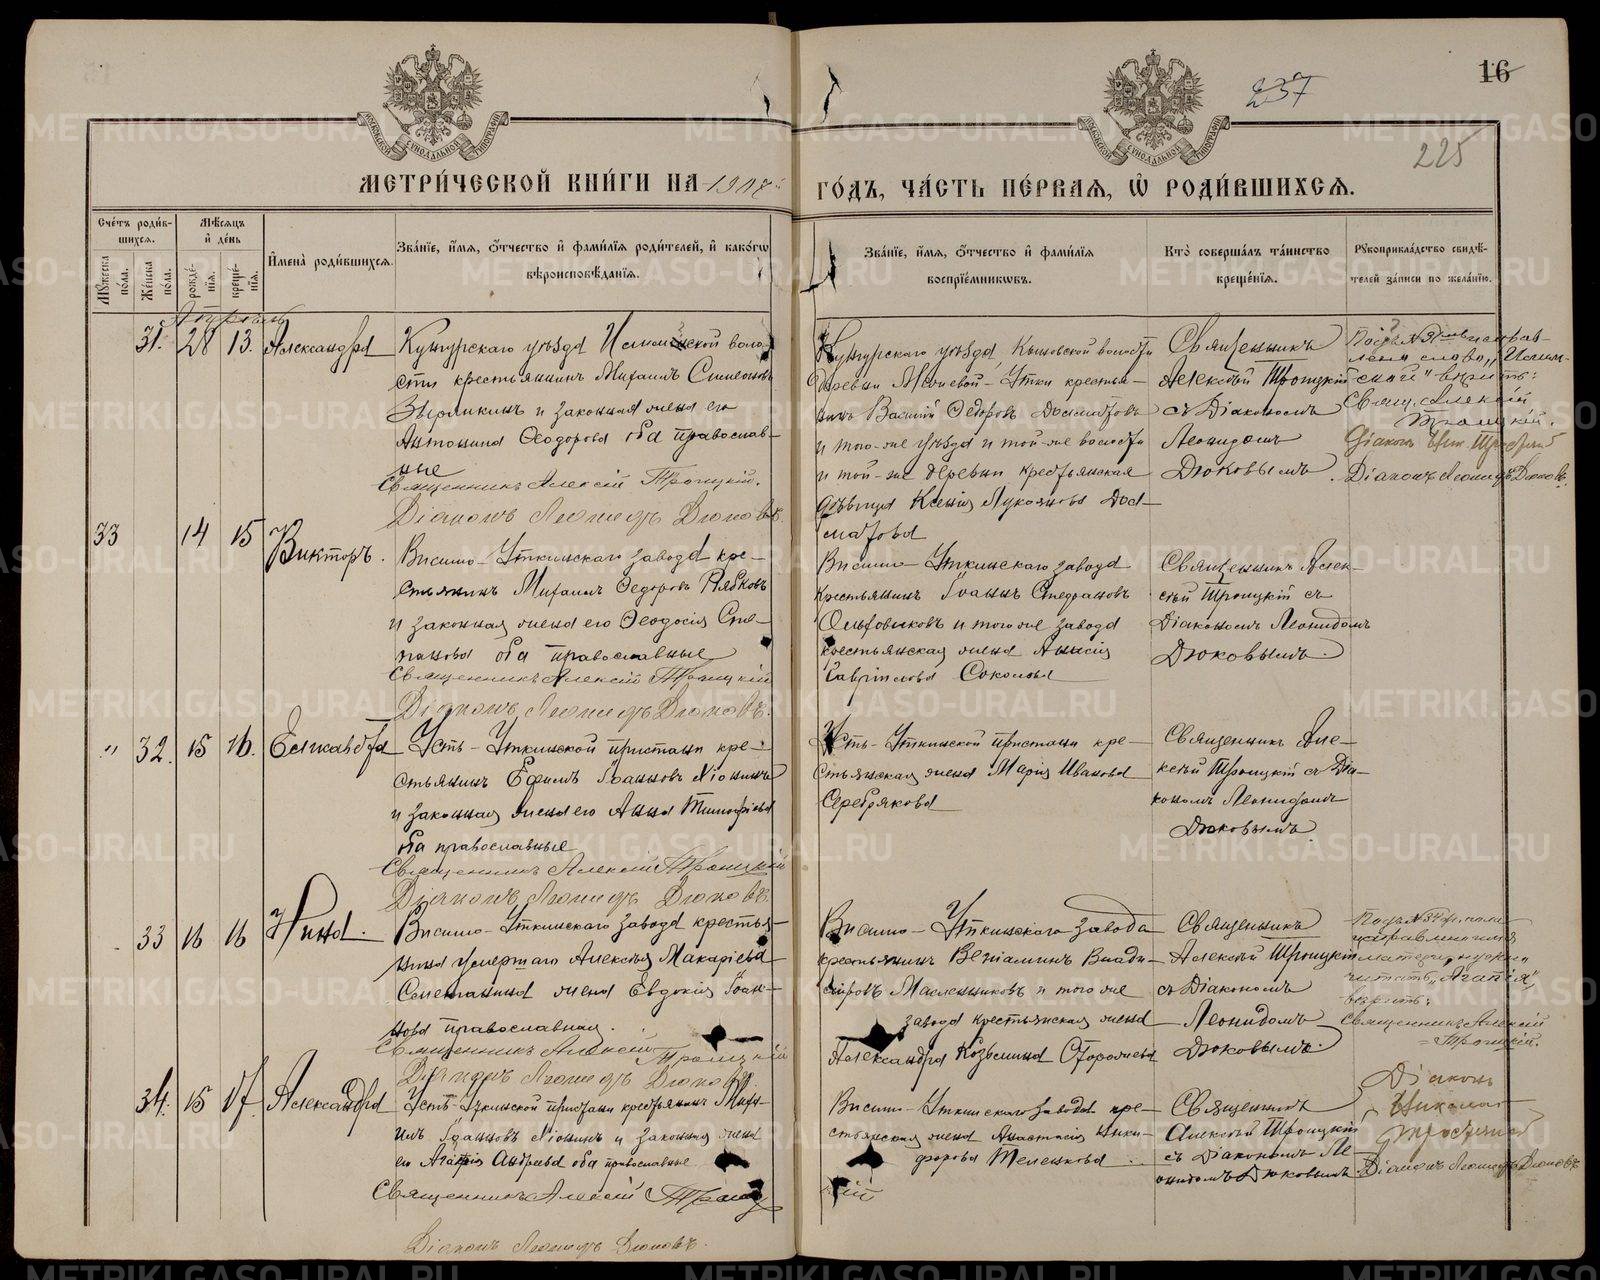 16
237
225
МЕТРИ́ЧЕСКОЙ КНИ́ГИ НА 1907й
ГО́ДЪ, ЧА́СТЬ ПЕ́РВАЯ, Ѡ҆ РОДИ́ВШИХСЯ.
Сче́тъ роди́в-
шихся.
Мѣ́сяцъ
и҆ де́нь
Мꙋ́жеска
по́ла.
Же́нска
по́ла.
рожде́-
нїѧ.
креще́-
нїѧ.
И҆мена̀ роди́вшихся.
Зва́нїе, и҆́мѧ, ѻ҆́тчество и҆ фами́лїѧ роди́телей, и҆ како́гѡ
вѣроисповѣ́данїѧ.
Зва́нїе, и҆́мѧ, ѻ҆́тчество и҆ фами́лїѧ
воспрїе́мникѡвъ.
Кто̀ соверша́лъ та́инство
креще́нїѧ.
Рꙋкоприкла́дство свидѣ́-
телей за́писи по жела́нїю.
Апрѣль
31. 28 13. Александра
Кунгурскаго уѣзда волo-
сти крестьянинъ Михаилъ Симеоновъ
и законная жена его
Антонина Ѳеодорова оба православ-
ные
Священникъ Алексій Троицкій.
Діаконъ Леонидъ Дюковъ.
Кунгурскаго уѣзда, волости
деревни Утки крестья-
нинъ Василій Ѳедоровъ
и того-же уѣзда и той-же волости
и той-же деревни крестьянская
дѣвица Ксенія Лукоянова
Священникъ
Алексѣй Троицкій
съ Діакономъ
Леонидомъ
Дюковымъ
Подъ № 31 исправ-
лено слово
вѣрить:
Свящ. Алексій
Троицкій.
Діаконъ Ник.
Діаконъ Леонидъ Дюковъ.
33 14 15 Викторъ.
Висимо-Уткинскаго завода кре-
стьянинъ Михаилъ Ѳедоровъ Рябковъ
и законная жена его Ѳеодосія Сте-
панова оба православные
Священникъ Алексій Троицкій
Діаконъ Леонидъ Дюковъ.
Висимо-Уткинскаго завода
крестьянинъ Іоаннъ Стефановъ
и того же завода
крестьянская жена Анисія
Гавріилова
Священникъ Алек-
сѣй Троицкій съ
Діакономъ Леонидомъ
Дюковымъ.
" 32. 15 16. Елисавета
Усть-Уткинской пристани кре-
стьянинъ Ефимъ Іоанновъ
и законная жена его Анна Тимофѣева
оба православные
Священникъ Алексій Троицкій
Діаконъ Леонидъ Дюковъ.
Усть-Уткинской пристани кре-
стьянская жена Марія Иванова
Серебрякова
Священникъ Але-
ксѣй Троицкій съ Діа-
кономъ Леонидомъ
Дюковымъ
33 16 16 Нина.
Висимо-Уткинскаго завода крестья-
нина умершаго Алексѣя Макарьева
жена Евдокія Іоан-
нова православная.
Священникъ Алексій Троицкій
Діаконъ Леонидъ Дюковъ.
Висимо-Уткинскаго завода
крестьянинъ Веніаминъ Влади-
міровъ Масленниковъ и того же
завода крестьянская жена
Александра Козьмина
Священникъ
Алексѣй Троицкій
съ Діакономъ
Леонидомъ
Дюковымъ.
Подъ № 34 ж. пола
матери, нужно
читать „Агапія",
вѣрить:
Священникъ Алексій
Троицкій.
Діаконъ
Николай
Діаконъ Леонидъ Дюковъ
34. 15 17. Александра
Усть-Уткинской пристани крестьянинъ Миха-
илъ Іоанновъ и законная жена
его Агапія Андреева оба православные
Священникъ Алексій
Діаконъ Леонидъ Дюковъ.
Висимо-Уткинскаго завода кре-
стьянская жена Анастасія Ники-
форова
Священникъ
Алексѣй Троицкій
съ Діакономъ Ле-
онидомъ Дюковымъ
METRIKI.GASO-URAL.RU